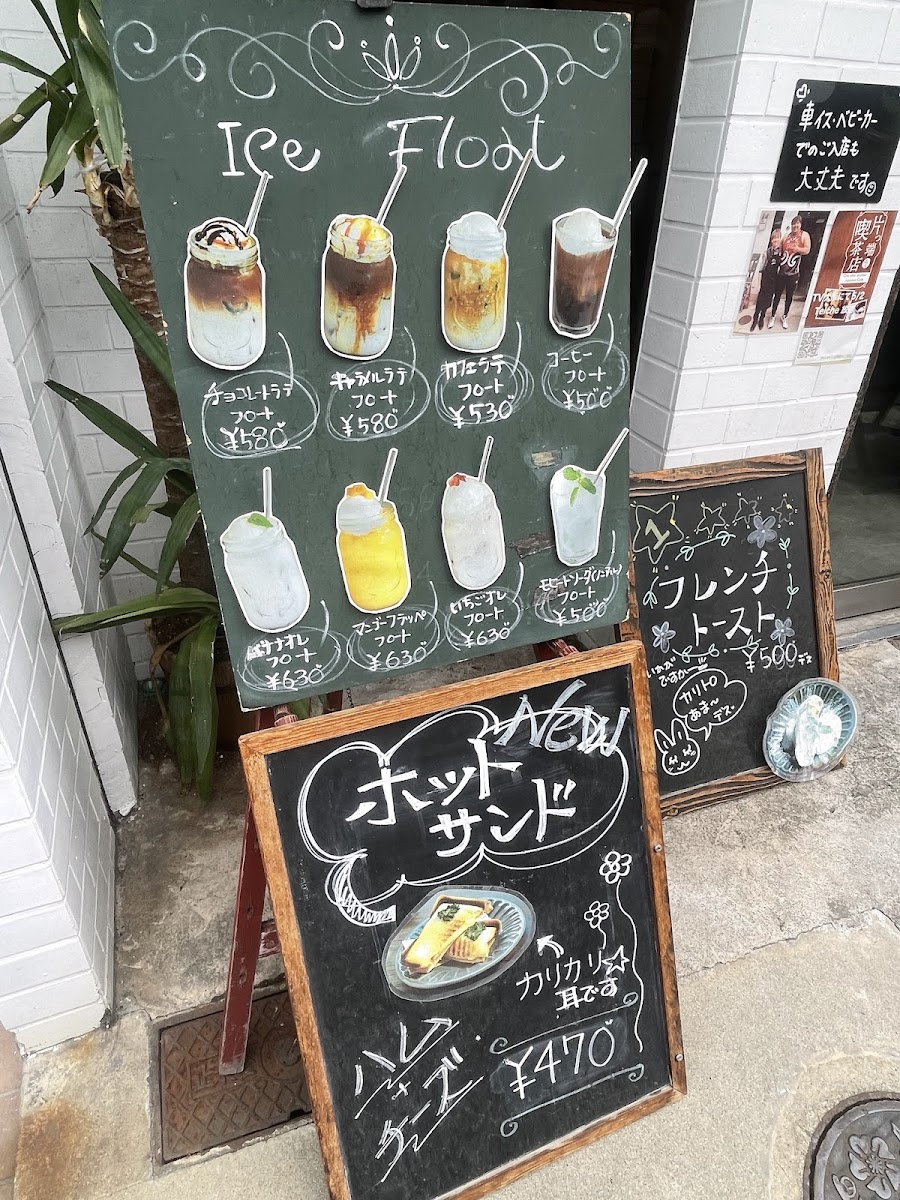 Ice Float
チョコレートラテ
フロート
¥580
キャラメルラテ
フロート
¥580
カフェラテ
フロート
¥530
コーヒー
フロート
¥500
バナナオレ
フロート
¥630
マンゴーフラッペ
フロート
¥630
いちごオレ
フロート
¥630
フロート
¥500
車イス・ベビーカー
でのご入店も
大丈夫です
片端の
喫茶店
1
フレンチ
トースト
いかが
ですかー
¥500デス
カリトロ
あま〜
デス。
New
ホット
サンド
カリカリ
耳です
ハム
+
チーズ
¥470